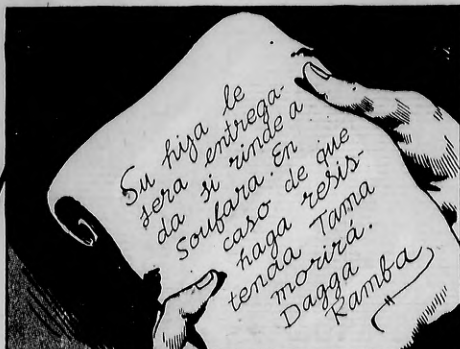 Su hija le
sera entrega-
da si rinde a
Soufara. En
caso de que
haga resis-
tenda Tama
morirá.
Dagga
Ramba